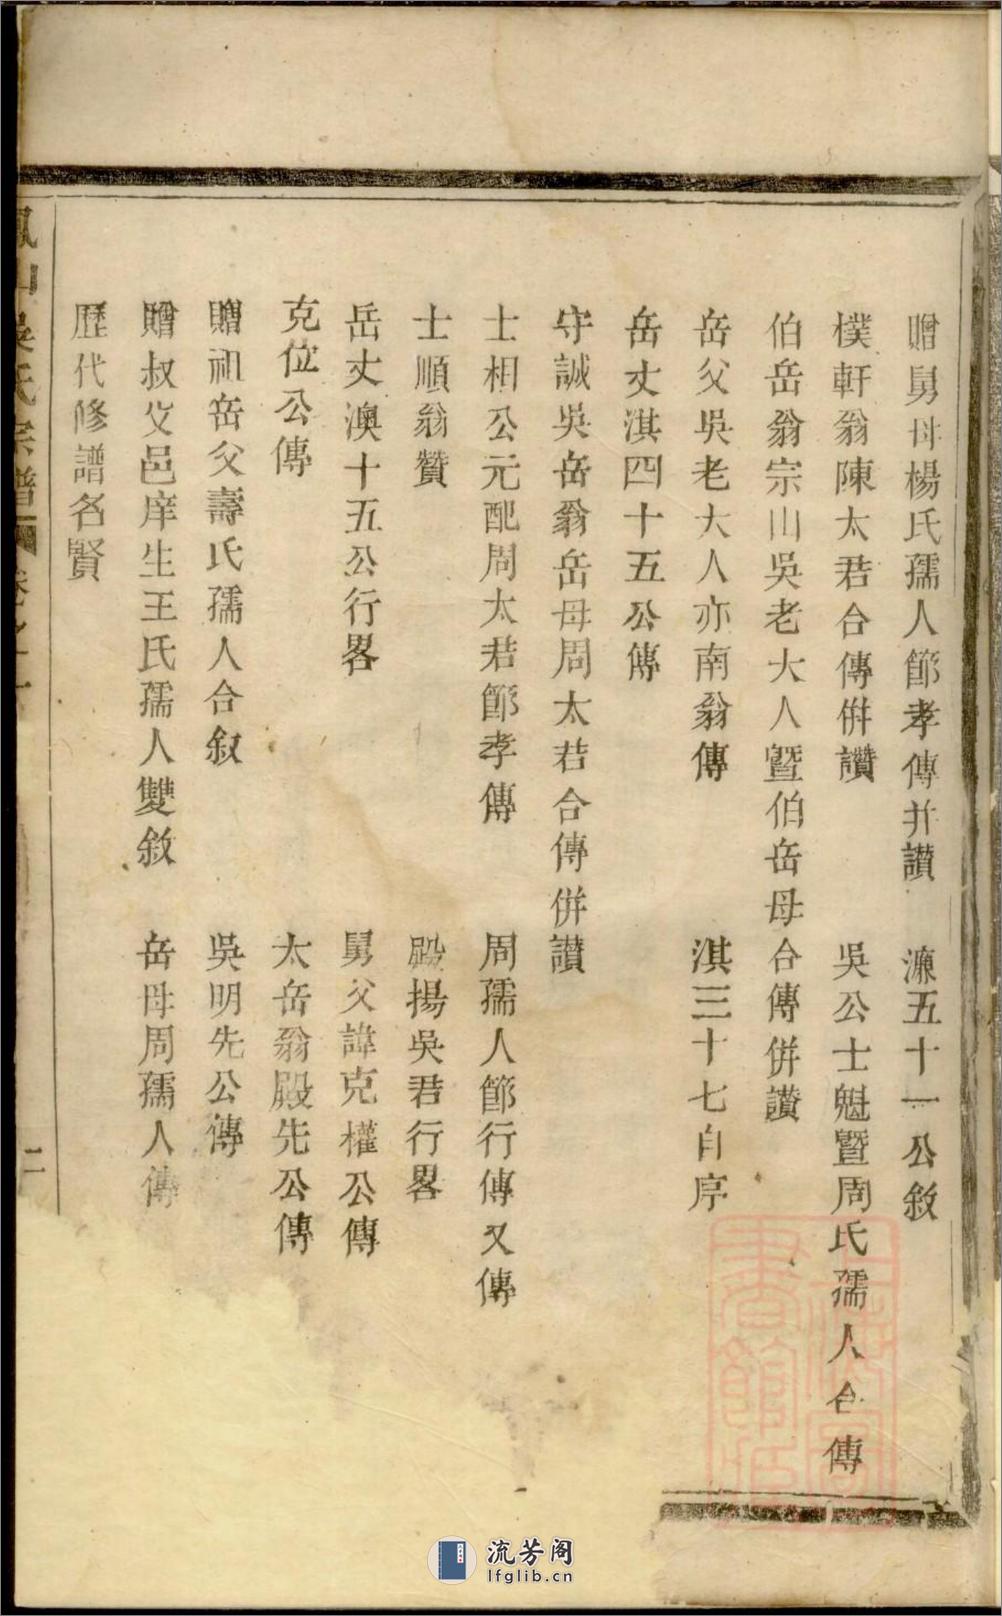 贈舅母楊氏孺人節孝傳并讚 濂五十一公敘
樸軒翁陳太君合傳倂讚 吳公士魁暨周氏孺人合傳
伯岳翁宗山吳老大人暨伯岳母合傳倂讚
岳父吳老大人亦南翁傳 淇三十七自序
岳丈淇四十五公傳
守誠吳岳翁岳母周太君合傳倂讚
士相公元配周太君節孝傳 周孺人節行傳又傳
士順翁贊 殿揚吳君行畧
岳丈澳十五公行畧 舅父諱克權公傳
克位公傳 太岳翁殿先公傳
贈祖岳父壽氏孺人合叙 吳明先公傳
贈叔父邑庠生王氏孺人雙敘 岳母周孺人傳
歷代修譜名賢
鳳山吳氏宗譜 卷之一 二
流芳阁
lfglib.cn